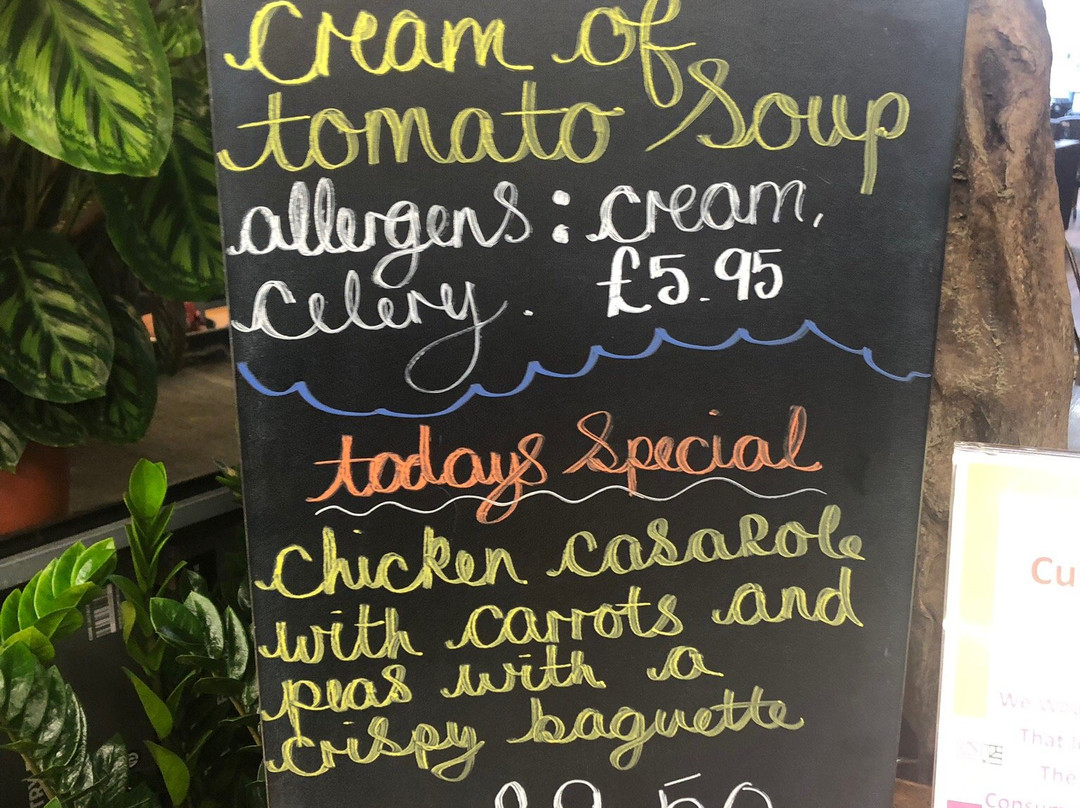 cream of
tomato Soup
allergens: cream,
Celery. £5.95
todays Special
chicken casarole
with carrots and
peas with a
crispy baguette
Cu
We
That
The
Consum